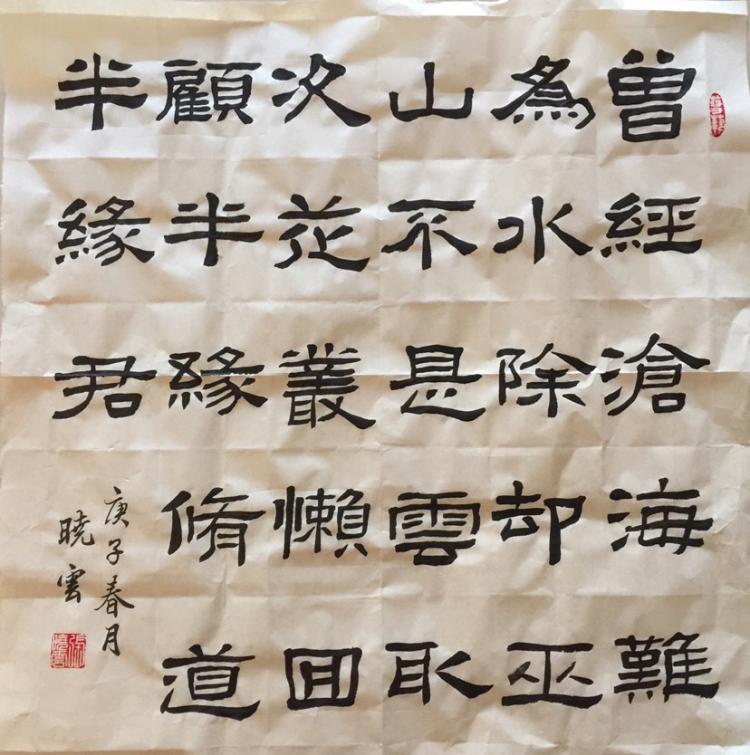 曾經滄海難
為水除却巫
山不是雲取
次花叢懶囬
顧半緣脩道
半緣君
庚子春月
曉雲